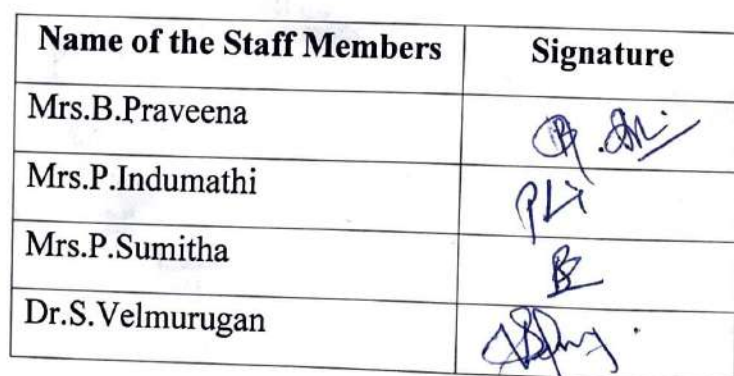 Name of the Staff Members Signature
Mrs.B.Praveena
Mrs.P.Indumathi
Mrs.P.Sumitha
Dr.S.Velmurugan